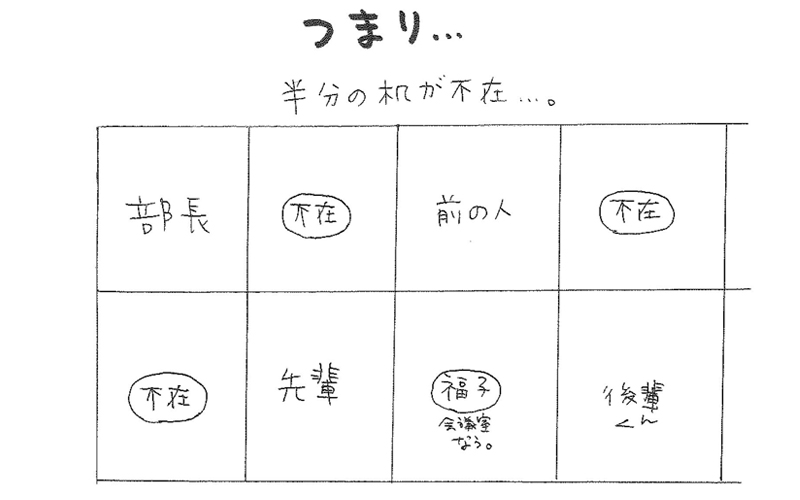 つまり…
半分の机が不在…。
部長
不在
前の人
不在
不在
先輩
福子
会議室
なう。
後輩
くん